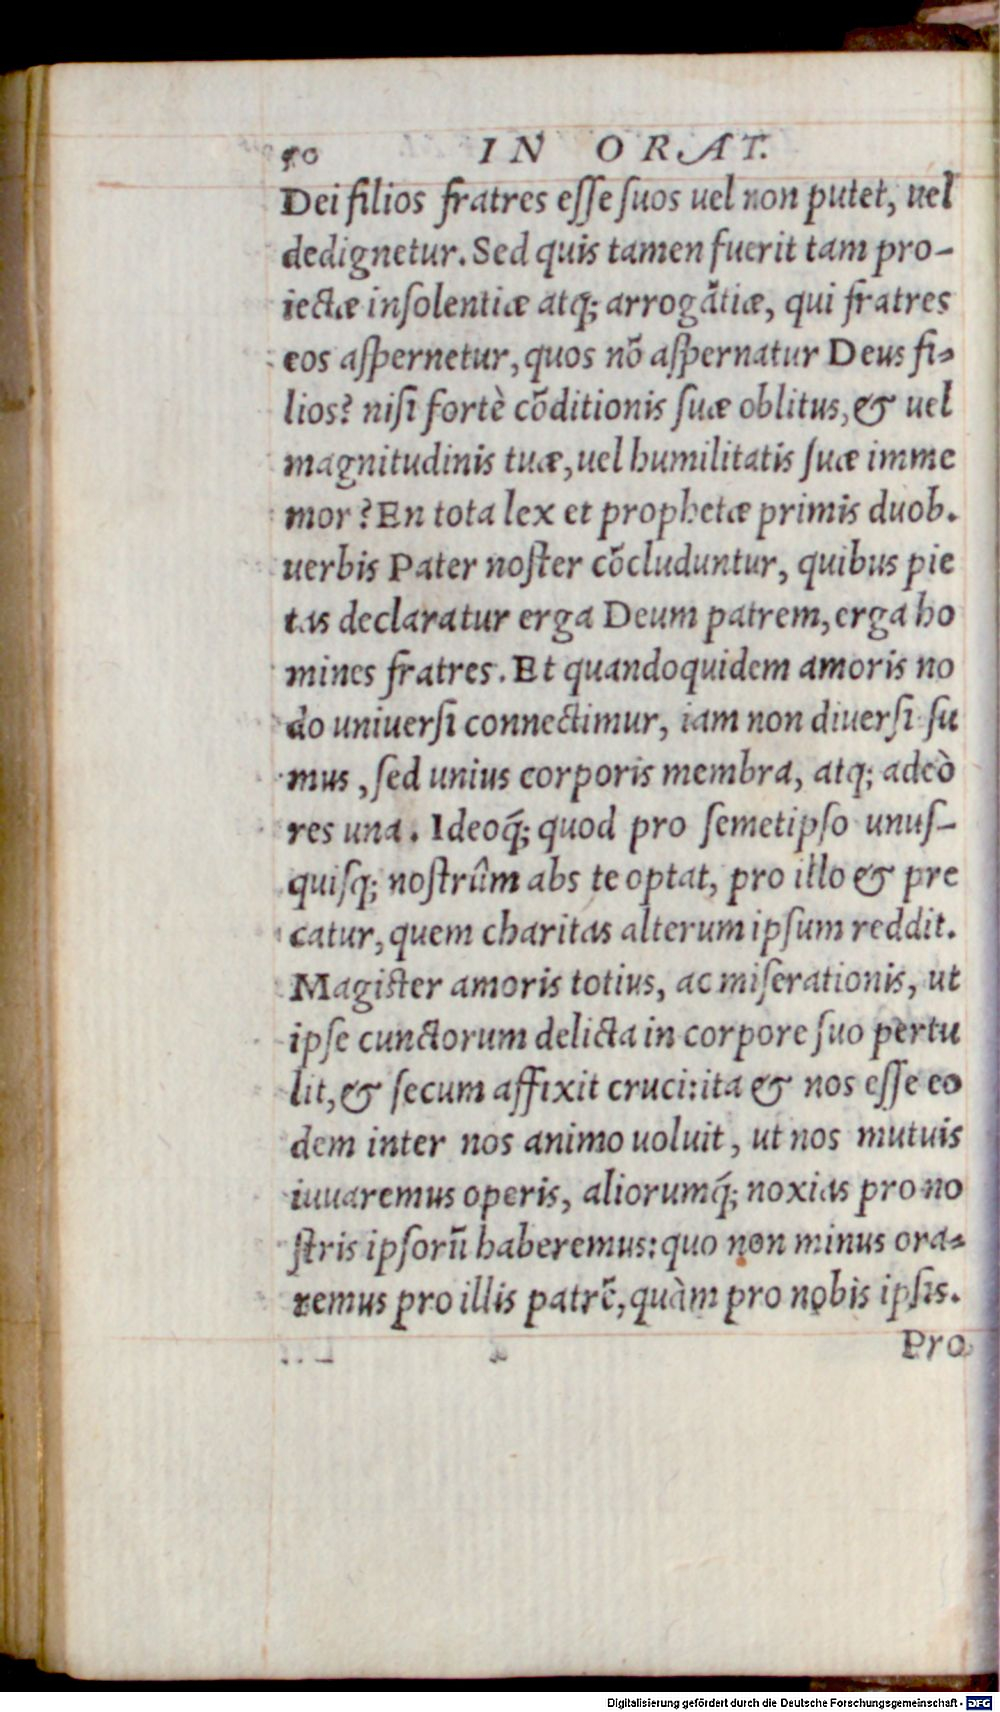 50 IN ORAT.
Dei filios fratres eſſe ſuos uel non putet, uel
dedignetur. Sed quis tamen fuerit tam pro-
iectæ inſolentiæ atq; arrogãtiæ, qui fratres
eos aſpernetur, quos nõ aſpernatur Deus fi-
lios? niſi fortè cõditionis ſuæ oblitus, & uel
magnitudinis tuæ, uel humilitatis ſuæ imme
mor? En tota lex et prophetæ primis duob.
uerbis Pater noſter cõcluduntur, quibus pie
tas declaratur erga Deum patrem, erga ho
mines fratres. Et quandoquidem amoris no
do uniuerſi connectimur, iam non diuerſi ſu
mus, ſed unius corporis membra, atq; adeò
res una. Ideoq́; quod pro ſemetipſo unuſ-
quiſq; noſtrûm abs te optat, pro illo & pre
catur, quem charitas alterum ipſum reddit.
Magiſter amoris totius, ac miſerationis, ut
ipſe cunctorum delicta in corpore ſuo pertu
lit, & ſecum affixit cruci: ita & nos eſſe eo
dem inter nos animo uoluit, ut nos mutuis
iuuaremus operis, aliorumq́; noxias pro no
ſtris ipſorũ haberemus: quo non minus ora-
remus pro illis patrẽ, quàm pro nobis ipſis.
Pro
Digitalisierung gefördert durch die Deutsche Forschungsgemeinschaft - DFG